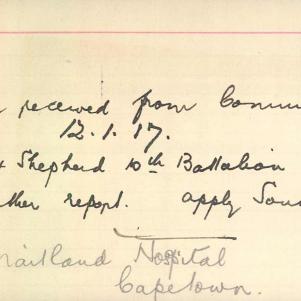 received from Commu
12.1.17.
Shepherd 10th Battalion
ther report. apply Sou
Maitland Hospital
Capetown.